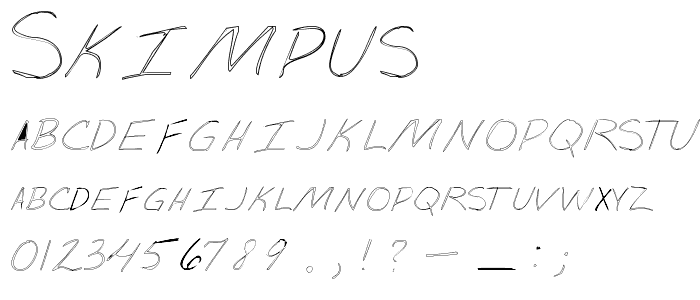 SKIMPUS
ABCDEFGHIJKLMNOPQRSTU
ABCDEFGHIJKLMNOPQRSTUVWXYZ
0123456789 . , ! ? — _ : ;